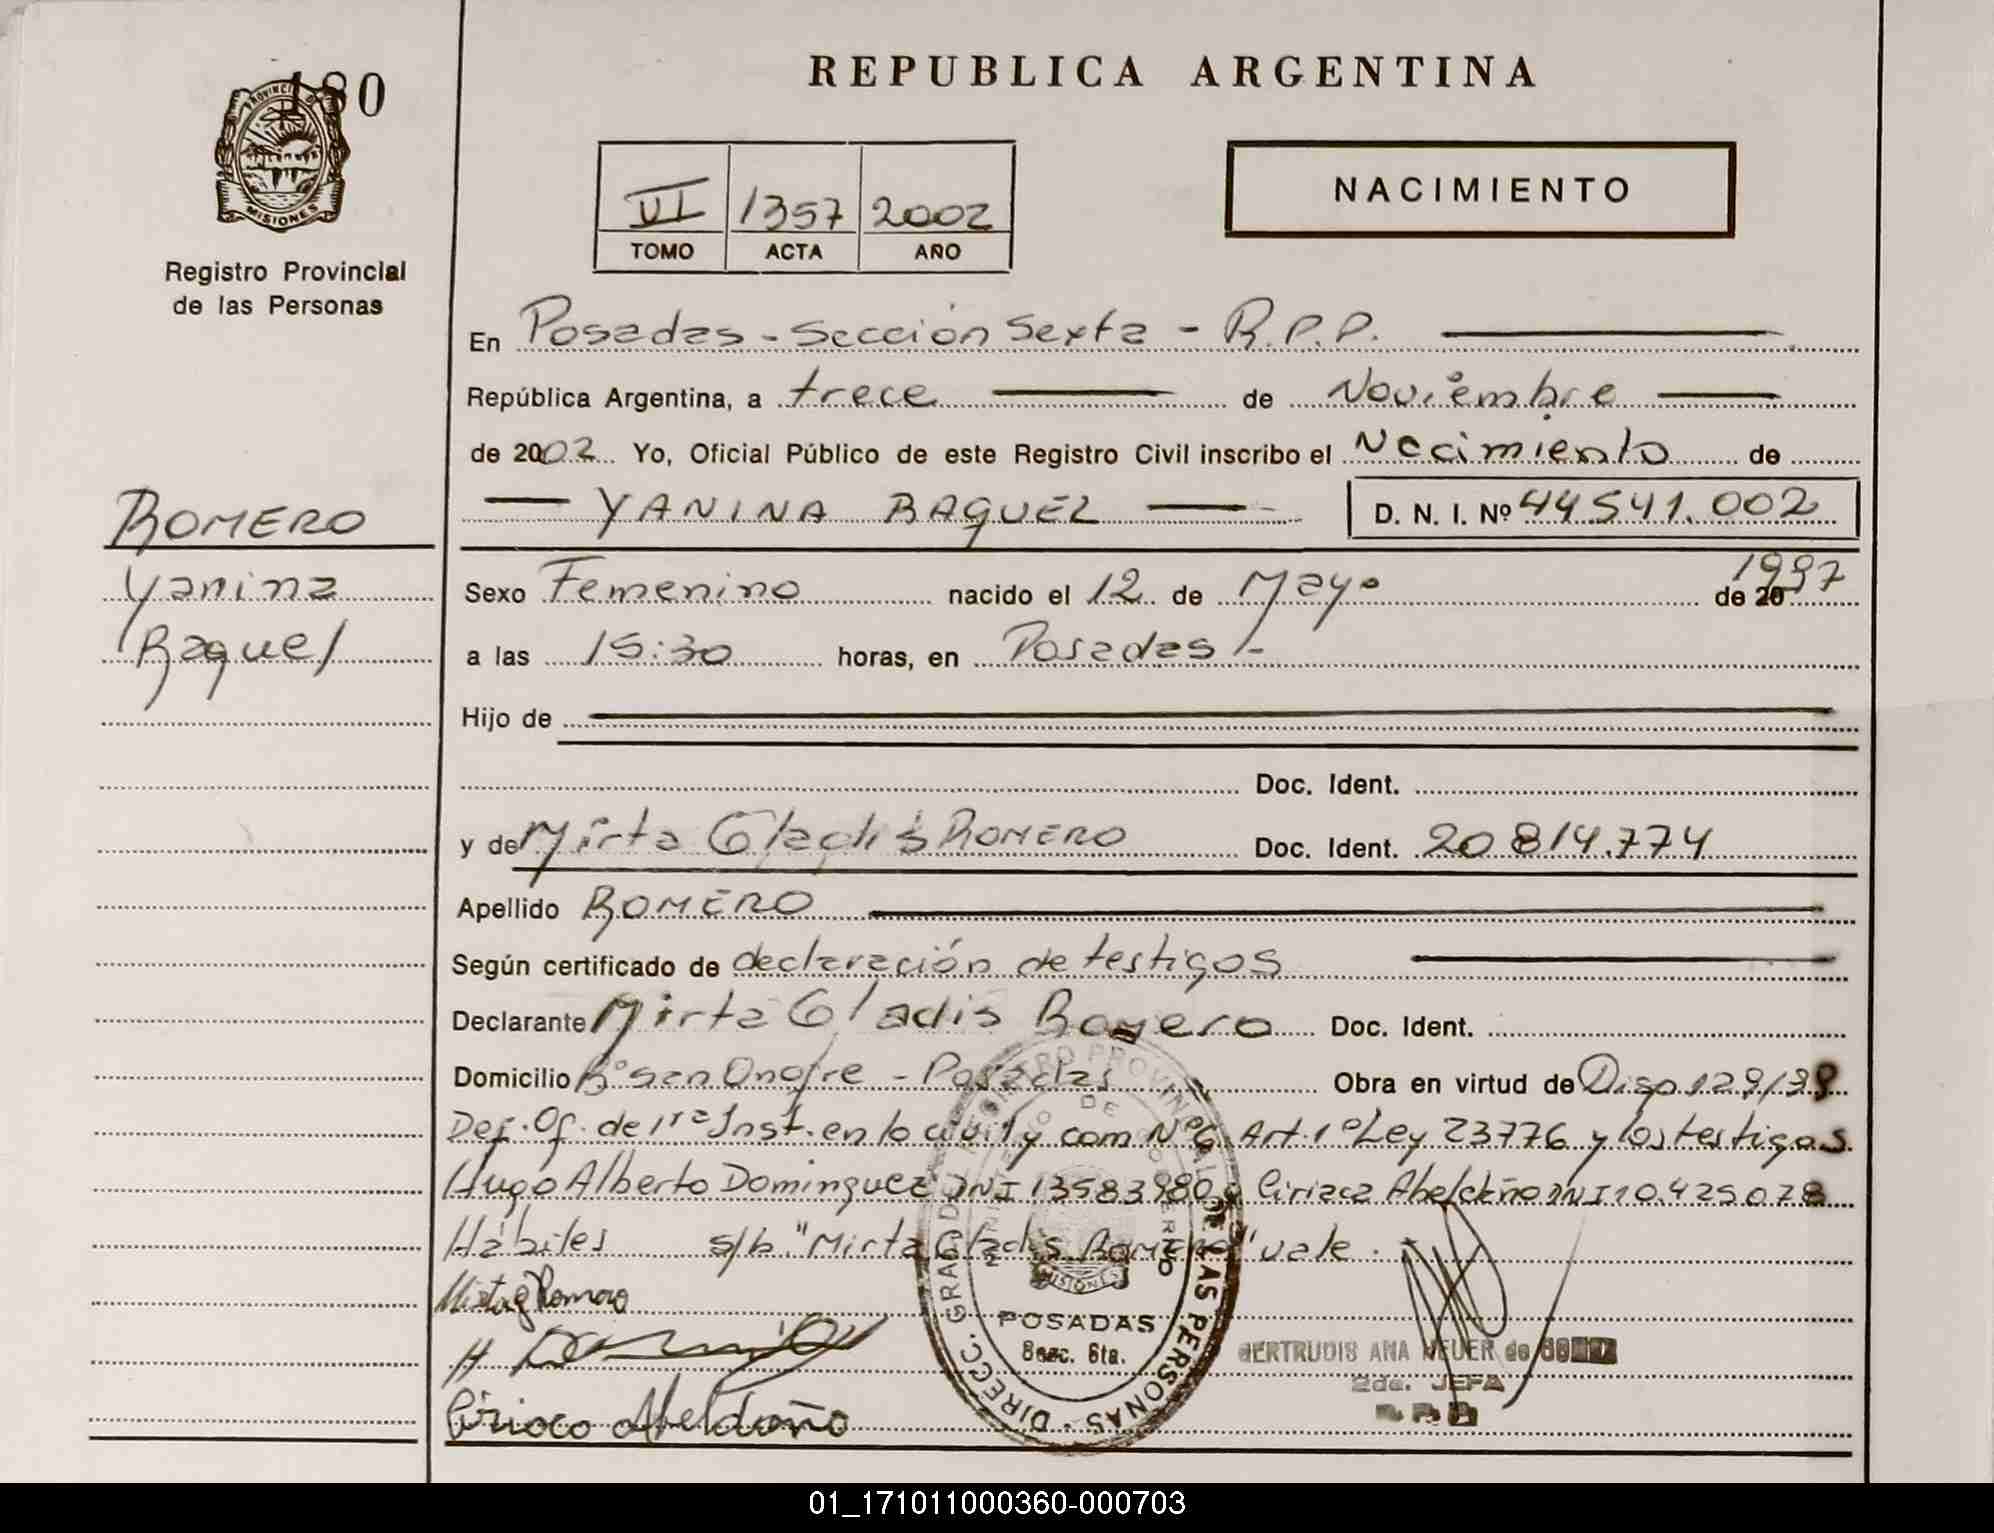 180
PROVINCIA DE
MISIONES
Registro Provincial
de las Personas
REPUBLICA ARGENTINA
VI 1357 2002
TOMO ACTA AÑO
NACIMIENTO
En Posadas - Sección Sexta - R.P.P.
República Argentina, a trece de Noviembre
de 2002 Yo, Oficial Público de este Registro Civil inscribo el Nacimiento de
YANINA RAQUEL D. N. I. Nº 44.541.002
ROMERO
Yanina
Raquel
Sexo Femenino nacido el 12 de Mayo de 20 1997
a las 15:30 horas, en Posadas
Hijo de
Doc. Ident.
y de Mirta Gladis ROMERO Doc. Ident. 20.814.774
Apellido ROMERO
Según certificado de declaración de testigos
Declarante Mirta Gladis Romero Doc. Ident.
Domicilio Bº San Onofre - Posadas Obra en virtud de Disp 129/99
Def. Of. de 1ra Inst. en lo civil y com Nº 6. Art. 1º Ley 23776 y los testigos
Hugo Alberto Dominguez DNI 13583980 y Ciriaca Abeldaño DNI 10.425.078
Hábiles s/b "Mirta Gladis Romero" vale.
Mirta G Romero
H
Abeldaño
DIRECC. GRAL DEL REGISTRO PROVINCIAL DE LAS PERSONAS
MINISTERIO DE GOBIERNO
MISIONES
POSADAS
Secc. 6ta.
GERTRUDIS ANA NEUER de
2da. JEFA
R.P.P.
01_171011000360-000703